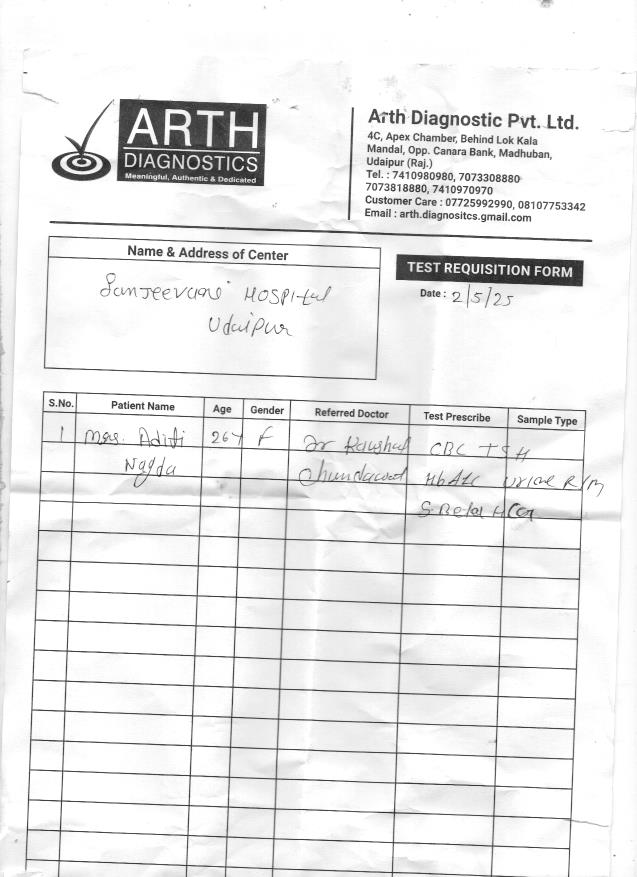 ARTH
DIAGNOSTICS
Meaningful, Authentic & Dedicated
Arth Diagnostic Pvt. Ltd.
4C, Apex Chamber, Behind Lok Kala
Mandal, Opp. Canara Bank, Madhuban,
Udaipur (Raj.)
Tel. : 7410980980, 7073308880
7073818880, 7410970970
Customer Care : 07725992990, 08107753342
Email : arth.diagnositcs.gmail.com
Name & Address of Center
Sanjeevani Hospital
Udaipur
TEST REQUISITION FORM
Date : 2/5/25
S.No. Patient Name Age Gender Referred Doctor Test Prescribe Sample Type
1 Mrs. Aditi 26Y F Dr Kaushal CBC TSH
Nagda Chundawat HbA1C Urine R/M
S. Beta HCG